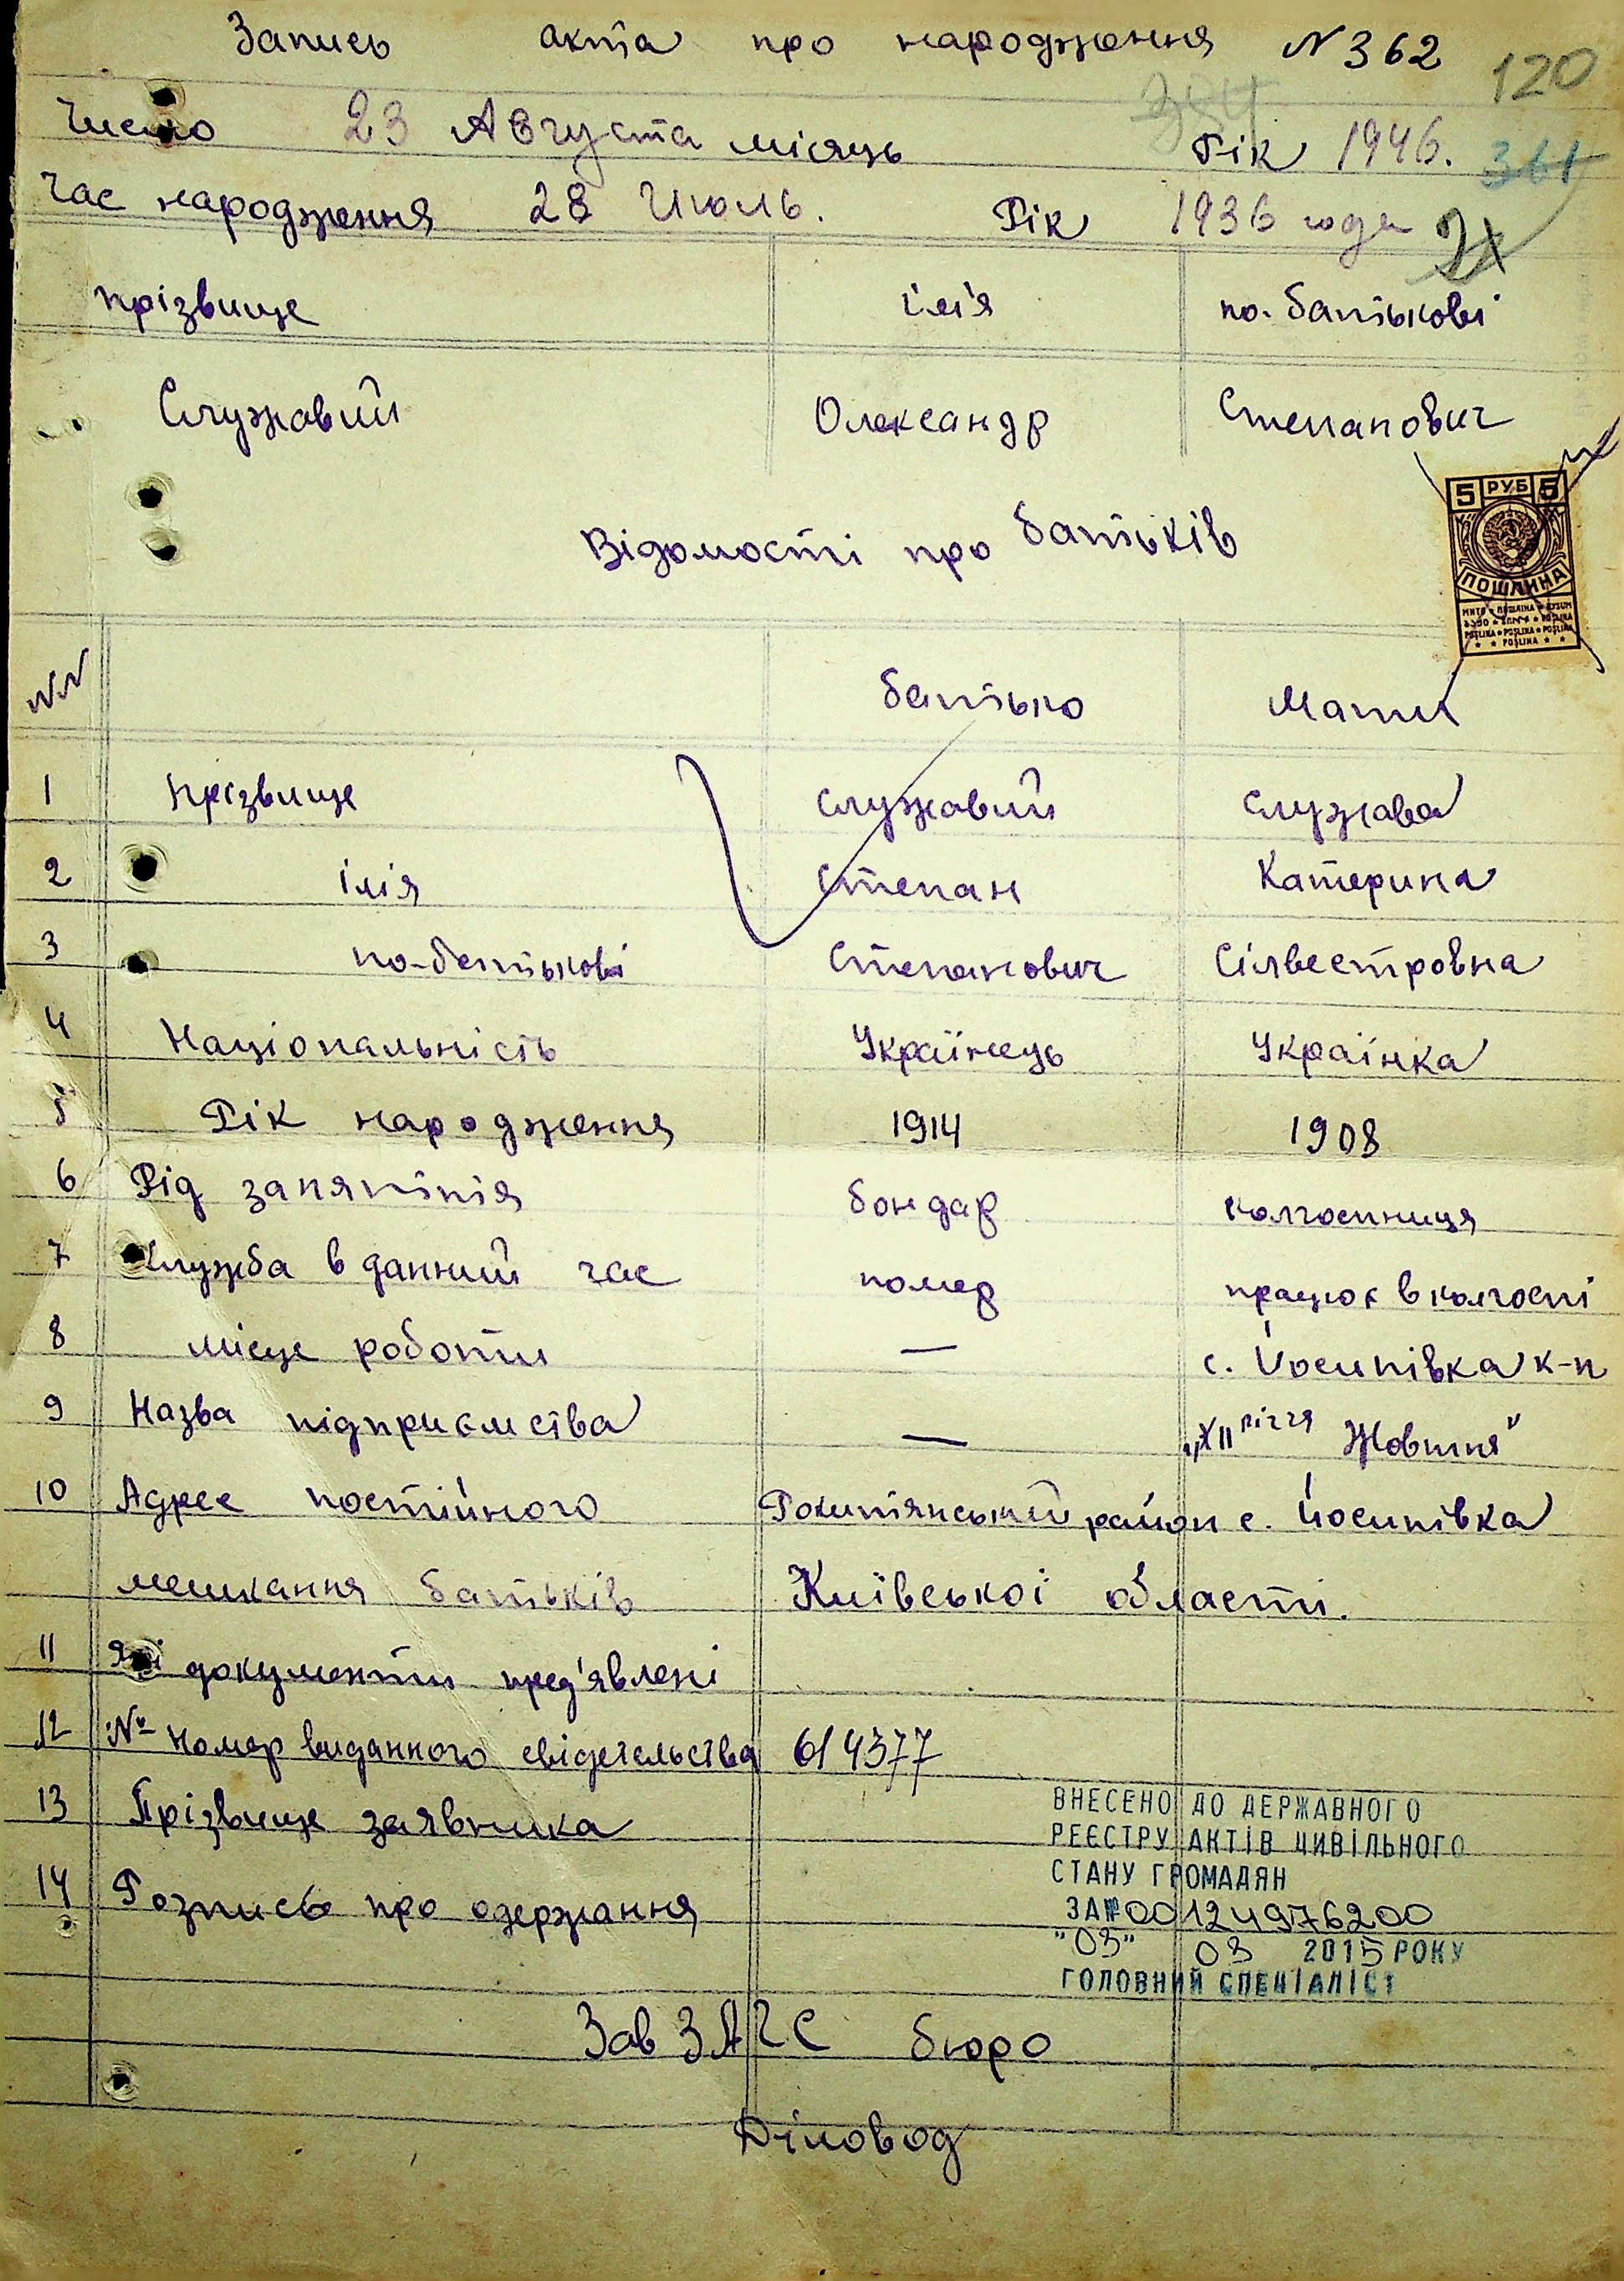 Запись акта про народження N 362
120
384
Число 23 Августа місяць Рік 1946. 361
Час народження 28 Июль. Рік 1936 года
прізвище імʼя по-батькові
Служавий Олександр Степанович
5 РУБ 5
ПОШЛИНА
Відомості про батьків
NN батько Мати
1 прізвище Служавий Служава
2 імія Степан Катерина
3 по-батькові Степанович Сілвестровна
4 Національність Українець Українка
5 Рік народження 1914 1908
6 Рід запяттія бондар колгоспниця
7 Служба в данний час помер працює в колгоспі
8 місце роботи — с. Йосипівка к-п
9 Назва підприємства — „XII річчя Жовтня"
10 Адрес постійного Рокитянський район с. Йосипівка
мешкання батьків Київської області.
11 Які документи пред'явлені
12 № номер виданного свідетельства 614377
13 Прізвище заявника
14 Розпись про одержання
ВНЕСЕНО ДО ДЕРЖАВНОГО
РЕЄСТРУ АКТІВ ЦИВІЛЬНОГО
СТАНУ ГРОМАДЯН
ЗА № 00124976200
"03" 03 2015 РОКУ
ГОЛОВНИЙ СПЕЦІАЛІСТ
Зав ЗАГС бюро
Діловод